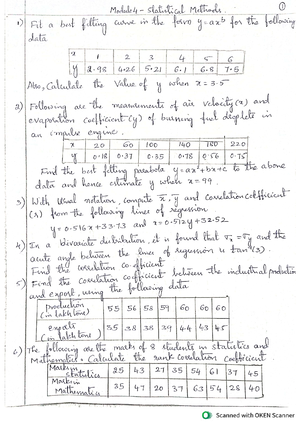 Module 4 - Statistical Methods. ①
1) Fit a best fitting curve in the form y = ax^b for the following
data
x 1 2 3 4 5 6
y 2.98 4.26 5.21 6.1 6.8 7.5
Also, Calculate the value of y when x = 3.5
2) Following are the measurements of air velocity (x) and
evaporation coefficient (y) of burning fuel droplets in
an impulse engine.
x 20 60 100 140 180 220
y 0.18 0.37 0.35 0.78 0.56 0.75
Find the best fitting parabola y = ax² + bx + c to the above
data and hence estimate y when x = 99.
3) With usual notation, compute x̄, ȳ and correlation coefficient
(r) from the following lines of regression
y = 0.516x + 33.73 and x = 0.512y + 32.52
4) In a bivariate distribution, it is found that σx = σy and the
acute angle between the lines of regression is tan⁻¹(3).
Find the correlation coefficient
5) Find the correlation coefficient between the industrial production
and export, using the following data
Production (in lakh tons) 55 56 58 59 60 60 60
exports (in lakh tons) 35 38 38 39 44 43 45
6) The following are the marks of 8 students in statistics and
Mathematics. Calculate the rank correlation coefficient
Marks in statistics 25 43 27 35 54 61 37 45
Marks in Mathematics 35 47 20 37 63 54 28 40
Scanned with OKEN Scanner